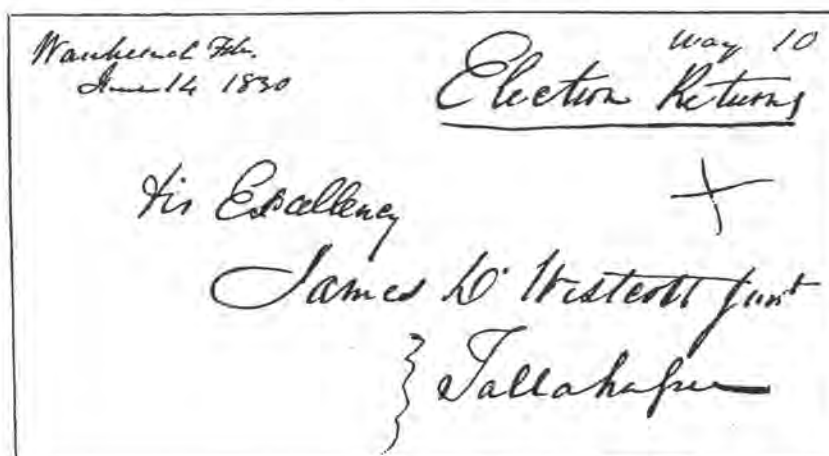 Waukeenah
June 14 1830
way 10
Election Returns
His Excellency
James D. Westcott Junr
Tallahassee